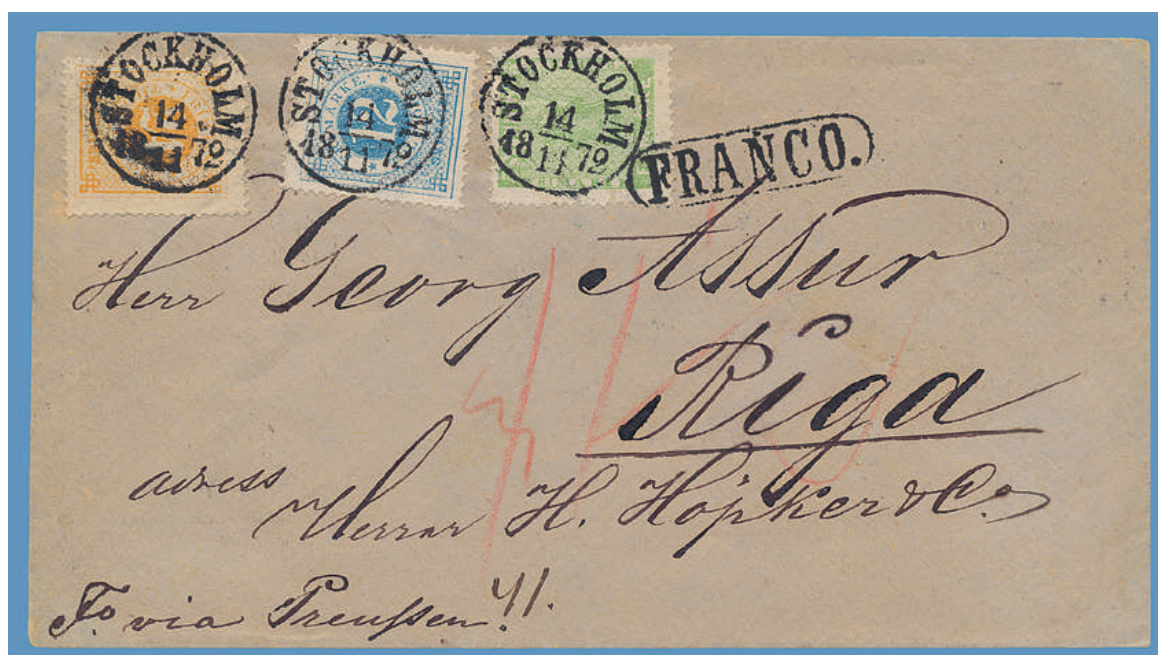 STOCKHOLM 14 18 11 72
STOCKHOLM 14 18 11 72
STOCKHOLM 14 18 11 72
MÄRKE.
12
FRANCO.
Herr Georg Assur
Riga
adress Herrar H. Höpker & Co
Fo. via Preußen!!